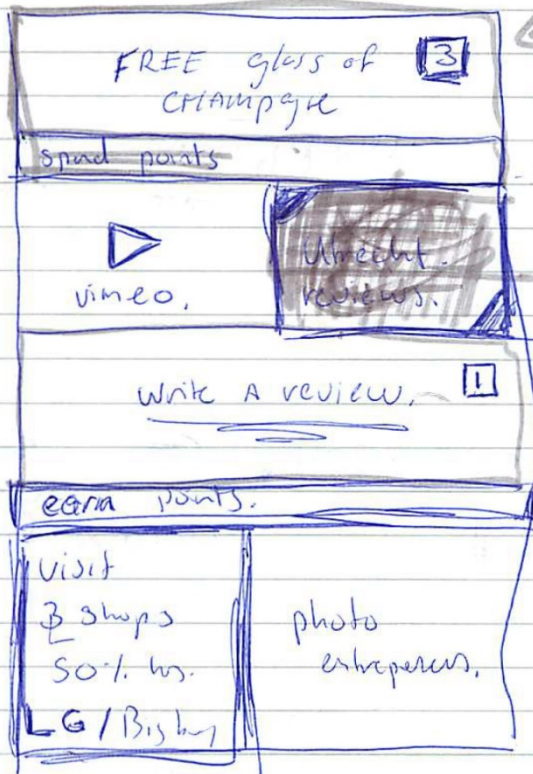 FREE glass of 3
CHAMpagne
spend points
vimeo.
Utrecht
reviews.
write A review. 1
earn points.
visit
3 shops
50%
LG /
photo